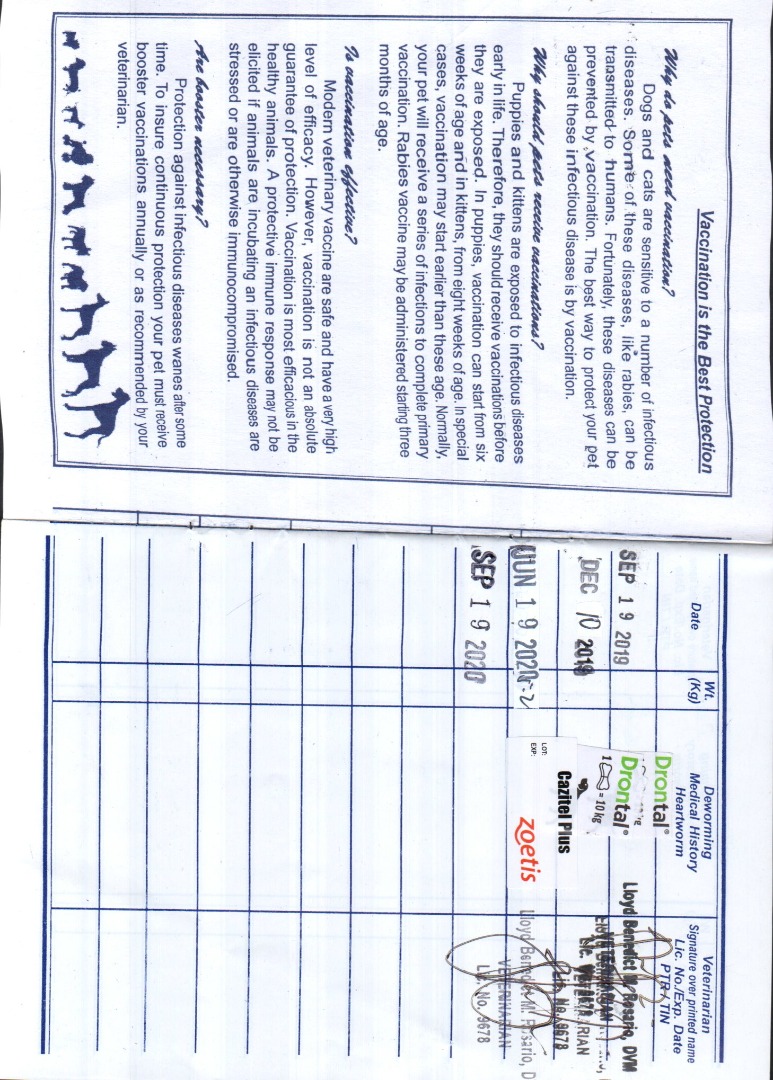 Vaccination is the Best Protection
Why do pets need vaccination?
Dogs and cats are sensitive to a number of infectious
diseases. Some of these diseases, like rabies, can be
transmitted to humans. Fortunately, these diseases can be
prevented by vaccination. The best way to protect your pet
against these infectious disease is by vaccination.
Why should pets receive vaccinations?
Puppies and kittens are exposed to infectious diseases
early in life. Therefore, they should receive vaccinations before
they are exposed. In puppies, vaccination can start from six
weeks of age and in kittens, from eight weeks of age. In special
cases, vaccination may start earlier than these age. Normally,
your pet will receive a series of infections to complete primary
vaccination. Rabies vaccine may be administered starting three
months of age.
Is vaccination effective?
Modern veterinary vaccine are safe and have a very high
level of efficacy. However, vaccination is not an absolute
guarantee of protection. Vaccination is most efficacious in the
healthy animals. A protective immune response may not be
elicited if animals are incubating an infectious diseases are
stressed or are otherwise immunocompromised.
Are booster necessary?
Protection against infectious diseases wanes after some
time. To insure continuous protection your pet must receive
booster vaccinations annually or as recommended by your
veterinarian.
Date
Wt.
(Kg)
Deworming
Medical History
Heartworm
Veterinarian
Signature over printed name
Lic. No./Exp. Date
PTR / TIN
SEP 19 2019
Drontal®
Lloyd Benedict M. Rosario, DVM
VETERINARIAN
DEC 10 2019
Drontal®
1 = 10 kg
VETERINARIAN
Lic. No. 9678
JUN 19 2020
Cazitel Plus
LOT:
EXP:
zoetis
Lloyd Benedict M. Rosario, D
VETERINARIAN
Lic. No. 9678
SEP 19 2020